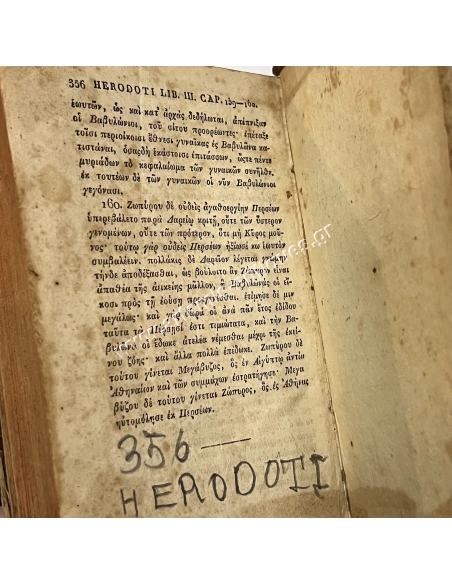 356 HERODOTI LIB. III. CAP. 159—160.
ἑωυτῶν, ὡς καὶ κατ' ἀρχὰς δεδήλωται, ἀπέπνιξαν
οἱ Βαβυλώνιοι, τοῦ σίτου προορέωντες· ἐπέταξε
τοῖσι περιοίκοισι ἔθνεσι γυναῖκας ἐς Βαβυλῶνα κα-
τιστάναι, ὅσας δὴ ἑκάστοισι ἐπιτάσσων, ὥστε πέντε
μυριάδων τὸ κεφαλαίωμα τῶν γυναικῶν συνῆλθε.
ἐκ τουτέων δὲ τῶν γυναικῶν οἱ νῦν Βαβυλώνιοι
γεγόνασι.
160. Ζωπύρου δὲ οὐδεὶς ἀγαθοεργίην Περσέων
ὑπερεβάλετο παρὰ Δαρείῳ κριτῇ, οὔτε τῶν ὕστερον
γενομένων, οὔτε τῶν πρότερον, ὅτι μὴ Κῦρος μοῦ-
νος· τούτῳ γὰρ οὐδεὶς Περσέων ἠξίωσέ κω ἑωυτὸν
συμβαλέειν. πολλάκις δὲ Δαρεῖον λέγεται γνώμην
τήνδε ἀποδέξασθαι, ὡς βούλοιτο ἂν Ζώπυρον εἶναι
ἀπαθέα τῆς ἀεικείης μᾶλλον, ἢ Βαβυλῶνάς οἱ εἴ-
κοσι πρὸς τῇ ἐούσῃ προσγενέσθαι. ἐτίμησε δέ μιν
μεγάλως· καὶ γὰρ δῶρά οἱ ἀνὰ πᾶν ἔτος ἐδίδου
ταῦτα τὰ Πέρσῃσί ἐστι τιμιώτατα, καὶ τὴν Βα-
βυλῶνά οἱ ἔδωκε ἀτελέα νέμεσθαι μέχρι τῆς ἐκεί-
νου ζόης· καὶ ἄλλα πολλὰ ἐπέδωκε. Ζωπύρου δὲ
τούτου γίνεται Μεγάβυζος, ὃς ἐν Αἰγύπτῳ ἀντία
Ἀθηναίων καὶ τῶν συμμάχων ἐστρατήγησε· Μεγα
βύζου δὲ τούτου γίνεται Ζώπυρος, ὃς ἐς Ἀθήνας
ηὐτομόλησε ἐκ Περσέων.
356
HERODOTI